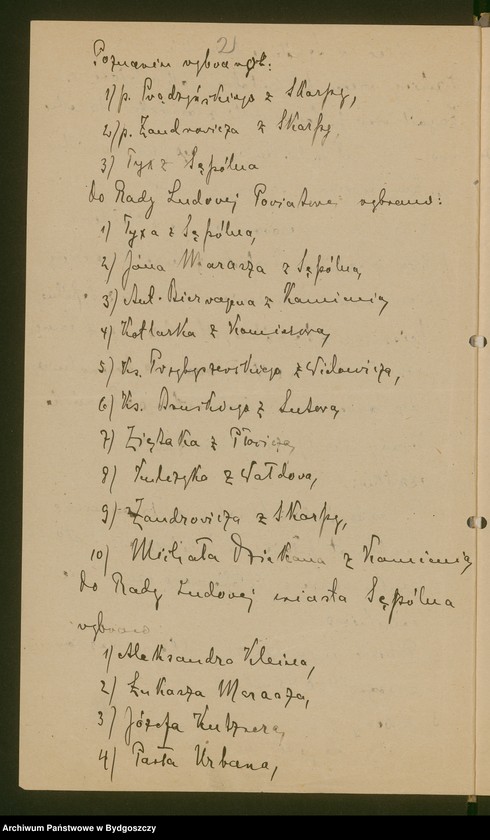 2)
Poznaniu wybrani:
1) p. Prądzyńskiego z Skarpy,
2) p. Żandrowicza z Skarpy
3) Tyx z Sępólna
do Rady Ludowej Powiatowej wybrano:
1) Tyxa z Sępólna,
2) Jana Maracza z Sępólna,
3) Ant. Bierwagna z Kamienia,
4) Kotlarka z
5) Ks. Przybyszewskiego z
6) Ks. z Lutowa,
7) Ziętaka z
8) z Wałdowa,
9) Żandrowicza z Skarpy,
10) Michała z Kamienia,
do Rady Ludowej miasta Sępólna
wybrano
1) Aleksandra Kleina,
2) Łukasza Maracza,
3) Józefa
4) Pawła Urbana,
Archiwum Państwowe w Bydgoszczy